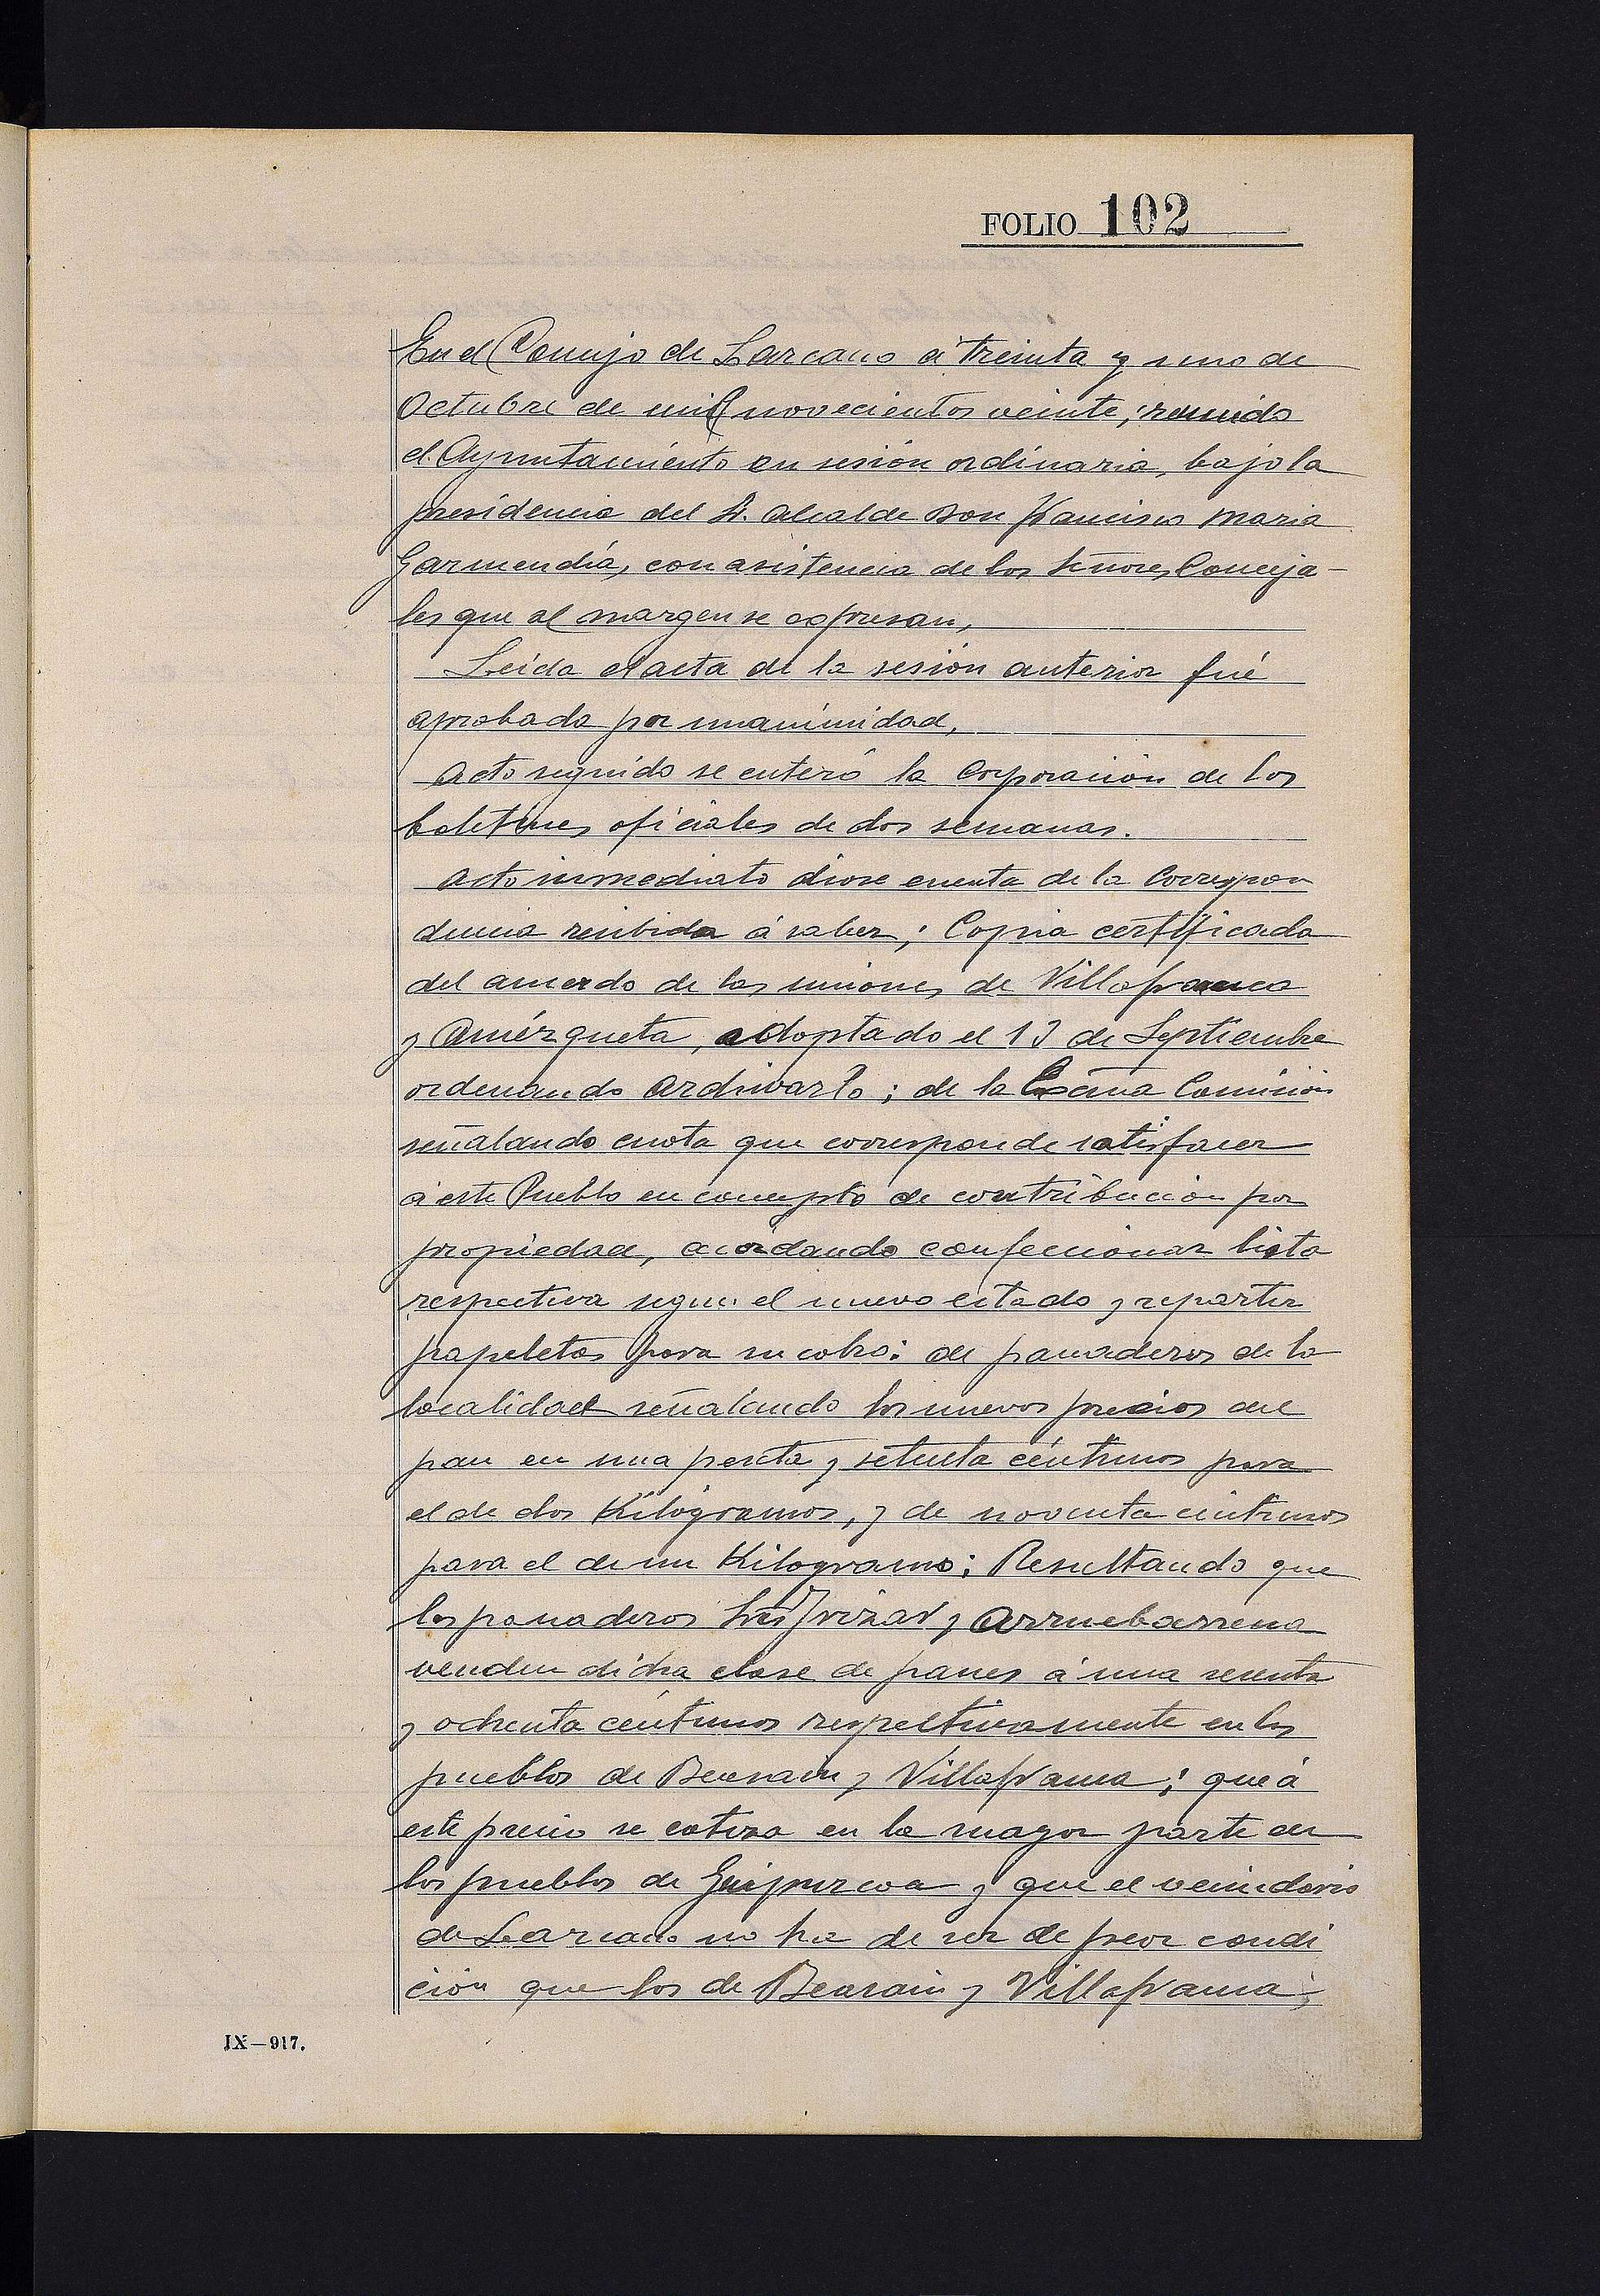 FOLIO 102
En el Concejo de Lazcano á treinta y uno de
Octubre de mil novecientos veinte; reunido
el Ayuntamiento en sesión ordinaria, bajo la
presidencia del Sr. Alcalde Don Francisco Maria
Garmendía, con asistencia de los Señores Conceja-
les que al margen se expresan,
Leida el acta de la sesión anterior fué
aprobada por unanimidad,
Acto seguido se enteró la Corporación de los
boletines oficiales de dos semanas.
Acto inmediato diose cuenta de la Correspon
dencia recibida á saber; Copia certificada
del acuerdo de las uniones de Villafranca
y Amézqueta, adoptado el 13 de Septiembre
ordenando archivarlo; de la Excma Comisión
señalando cuota que corresponde satisfacer
á este Pueblo en concepto de contribución por
propiedad, acordando confeccionar lista
respectiva segun el nuevo estado y repartir
papeletas para su cobro: de panaderos de la
localidad señalando los nuevos precios del
pan en una peseta y setenta céntimos para
el de dos Kilógramos, y de noventa céntimos
para el de un Kilogramo; Resultando que
los panaderos Sres Irizar y Arruebarrena
venden dicha clase de panes á una sesenta
y ochenta céntimos respectivamente en los
pueblos de Beasain y Villafranca; que á
este precio se cotiza en la mayor parte de
los pueblos de Guipuzcoa y que el vecindario
de Lazcano no ha de ser de peor condi
ción que los de Beasain y Villafranca;
IX-917.